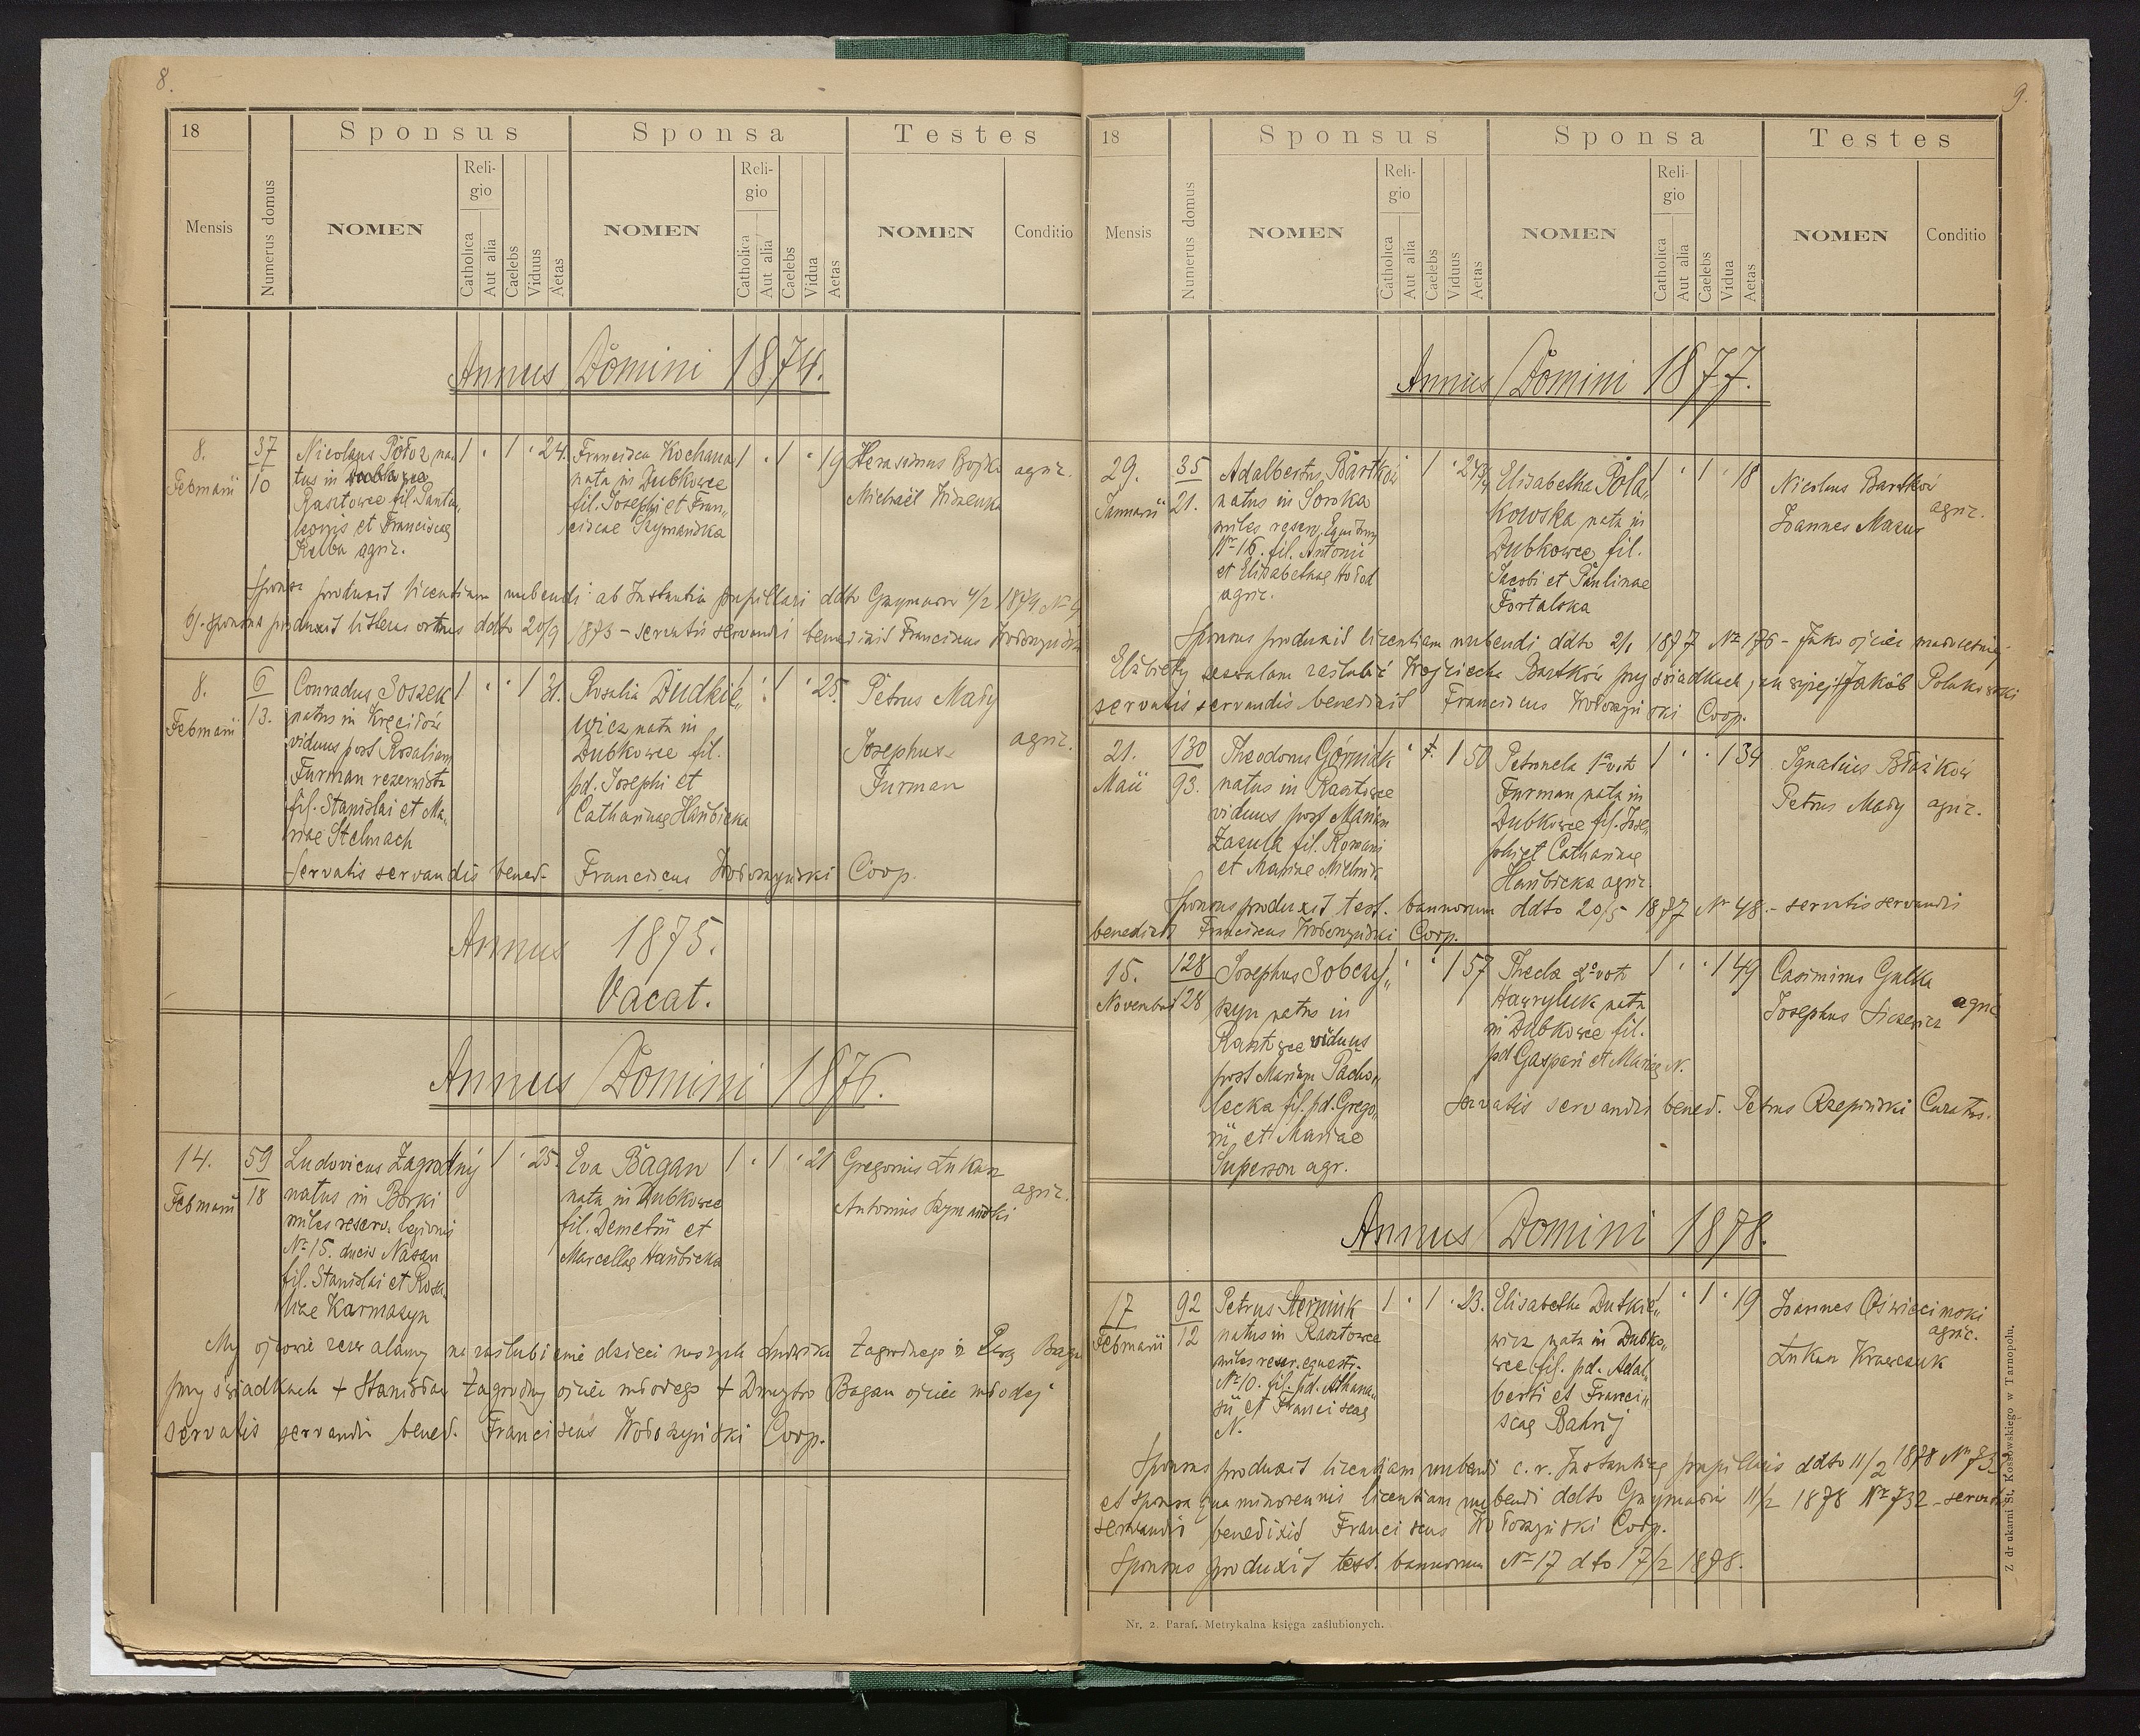 8.
18
Sponsus
Sponsa
Testes
Mensis
Numerus domus
NOMEN
Reli-
gio
Catholica
Aut alia
Caelebs
Viduus
Aetas
NOMEN
Reli-
gio
Catholica
Aut alia
Caelebs
Vidua
Aetas
NOMEN
Conditio
Annus Domini 1874.
8.
Februarii
37
10
Nicolaus Półoz na-
tus in
Rasztowce fil. Panta-
leonis et Franciscae
agric.
1 . 1 . 24.
Francisca Kochana
nata in Dubkowce
fil. Josephi et Fran-
ciscae Szymańska
1 . 1 . 19
Herasimus Bojko
Michaël
agric.
Sponsa produxit licentiam nubendi ab Instantia pupillari ddto Grzymałów 4/2 1874 No
6). sponsus produxit litteras ddto 20/9 1873 – servatis servandis benedixit Franciscus Wołoszyński
8.
Februarii
6
13.
Conradus Soszek
natus in Kręciłów
viduus post Rosaliam
Furman rezerwista
fil. Stanislai et Ma-
riae Stelmach
1 . . 1 31.
Rosalia Dudkie-
wicz nata in
Dubkowce fil.
pd. Josephi et
Catharinae Hańbicka
1 . 1 . 25.
Petrus Mały
Josephus
Furman
agric.
Servatis servandis bened. Franciscus Wołoszyński Coop.
Annus 1875.
Vacat.
Annus Domini 1876.
14.
Februarii
59
18
Ludovicus Zagrodny
natus in Borki
miles reserv. legionis
No 15. ducis Nasau
fil. Stanislai et Rosa-
liae Karmazyn
1 . 25.
Eva Bagan
nata in Dubkowce
fil. Demetrii et
Marcellae Hańbicka
1 . 1 . 21
Gregorius Łukasz
Antonius Szymański
agric.
My ojcowie zezwalamy na zaślubienie dzieci naszych Ludwika Zagrodnego i z Ewą Bagan
przy świadkach + Stanisław Zagrodny ojciec młodego + Dmytro Bagan ojciec młodej
servatis servandis bened. Franciscus Wołoszyński Coop.
9.
18
Sponsus
Sponsa
Testes
Mensis
Numerus domus
NOMEN
Reli-
gio
Catholica
Aut alia
Caelebs
Viduus
Aetas
NOMEN
Reli-
gio
Catholica
Aut alia
Caelebs
Vidua
Aetas
NOMEN
Conditio
Annus Domini 1877.
29.
Januarii
35
21.
Adalbertus Bartków
natus in Soroka
miles reserv.
No 16. fil. Antonii
et Elisabethae Hołod
agric.
Elisabetha Pola-
kowska nata in
Dubkowce fil.
Jacobi et Paulinae
Fortalska
1 . 1 . 18
Nicolaus Bartków
Joannes Mazur
agric.
Sponsus produxit licentiam nubendi ddto 2/1 1877 No 176 – Jako ojciec małoletniej
Elżbiety zezwalam zaślubić Wojciecha Bartków przy świadkach, jak wyżej + Jakób Polakowski
servatis servandis benedixit Franciscus Wołoszyński Coop.
21.
Maii
130
93.
Theodorus Górniak
natus in Rasztowce
viduus post Mariam
Zazula fil. Romani
et Mariae Mielnik
1 50
Petronela 1o vot
Furman nata in
Dubkowce fil. Jose-
phi et Catharinae
Hańbicka agric.
1 . . 1 34
Ignatius Błażków
Petrus Mały
agric.
Sponsus produxit test. bannorum ddto 20/5 1877 No 48. – servatis servandis
benedixit Franciscus Wołoszyński Coop.
15.
Novembris
128
128
Josephus Sobczy-
szyn natus in
Rasztowce viduus
post Mariam Pacho-
lecka fil. pd. Grego-
rii et Mariae
Superson agr.
1 57
Thecla 2o voto
Hawryluk nata
in Dubkowce fil.
pd Gaspari et Mariae N.
1 . . 1 49
Casimirus Gałka
Josephus
agric
Servatis servandis bened. Petrus Rzepiński Curatus.
Annus Domini 1878.
17
Februarii
92
12
Petrus Sterniuk
natus in Rasztowce
miles reser. equestr.
No 10. fil. pd. Athana-
sii et Franciscae
N.
1 . 1 . 23.
Elisabetha Dutkie-
wicz nata in Dubko-
wce fil. pd. Adal-
berti et Franci-
scae Bahrij
1 . 1 . 19
Joannes Oświecimski
agric.
Łukasz Krawczuk
Sponsus produxit licentiam nubendi c. r. Instantiae pupillaris ddto 11/2 1878 No
et sponsa qua minorennis licentiam nubendi ddto Grzymałów 11/2 1878 No 732 – servatis
servandis benedixit Franciscus Wołoszyński Coop.
Sponsus produxit test. bannorum No 17 dto 17/2 1878.
Nr. 2. Paraf. Metrykalna księga zaślubionych.
Z drukarni St. Kossowskiego w Tarnopolu.